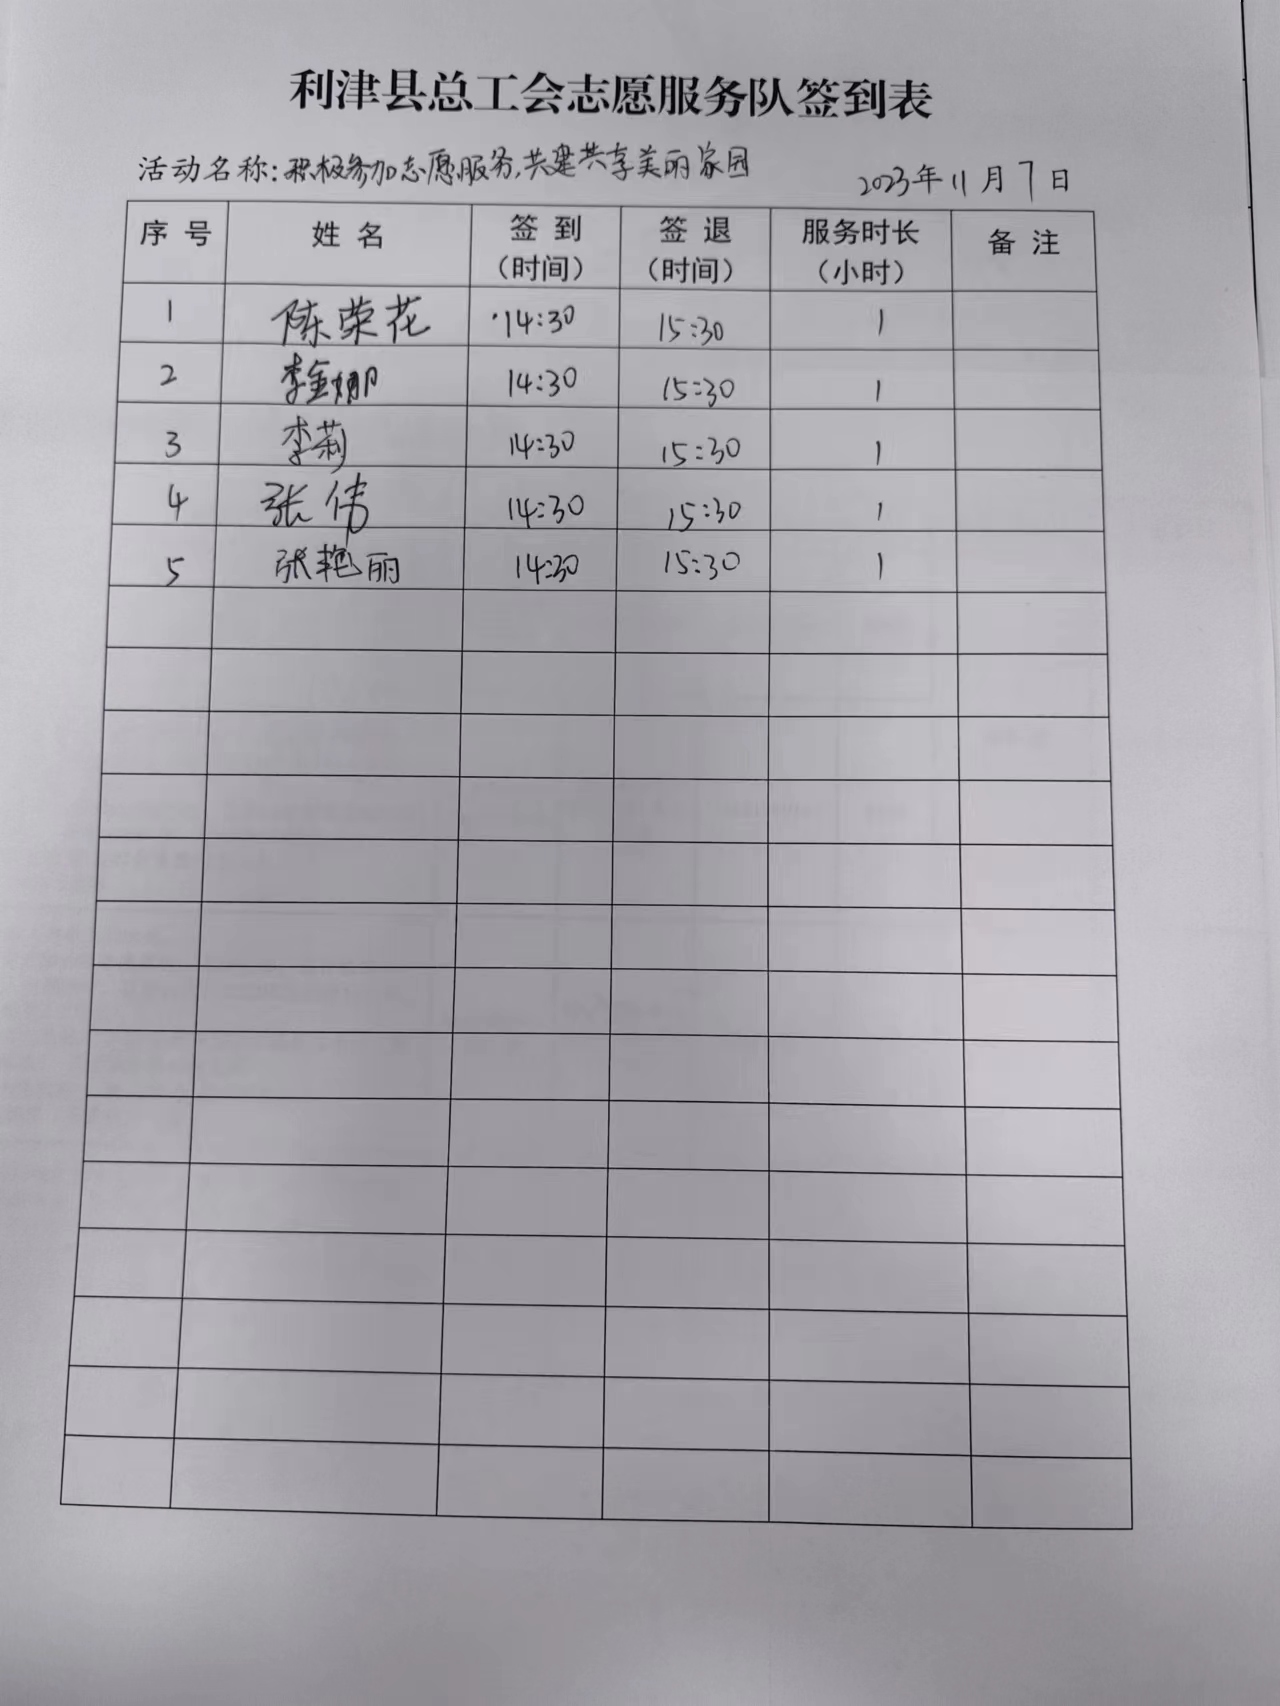 利津县总工会志愿服务队签到表
活动名称:积极参加志愿服务,共建共享美丽家园 2023年11月7日
序号 姓名 签到(时间) 签退(时间) 服务时长(小时) 备注
1 陈荣花 14:30 15:30 1
2 李金娜 14:30 15:30 1
3 李莉 14:30 15:30 1
4 张伟 14:30 15:30 1
5 张艳丽 14:30 15:30 1